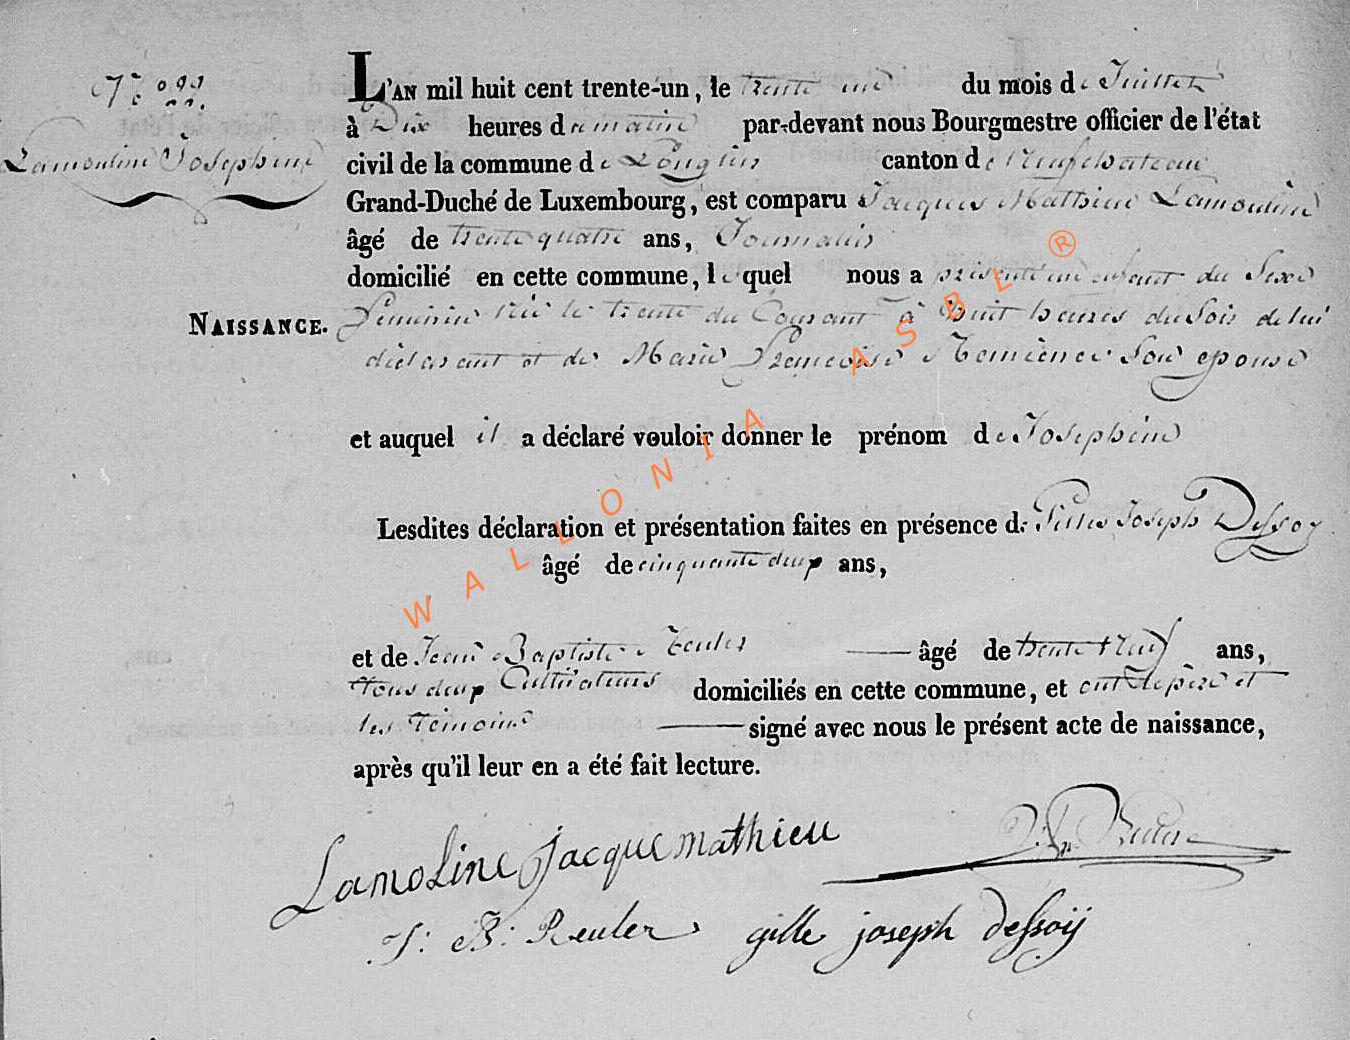 Lamouline Josephine
L'AN mil huit cent trente-un, le trente un du mois de Juillet
à Dix heures du matin par-devant nous Bourgmestre officier de l'état
civil de la commune de Longlier canton de Neufchateau
Grand-Duché de Luxembourg, est comparu Jacques Mathieu Lamouline
âgé de trente quatre ans, Journalier
domicilié en cette commune, lequel nous a présenté un enfant du Sexe
NAISSANCE.
Feminin Née le trente du Courant à huit heures du Soir de lui
déclarant et de Marie Françoise Son epouse
et auquel il a déclaré vouloir donner le prénom de Josephine
Lesdites déclaration et présentation faites en présence de Joseph Dessoy
âgé de cinquante deux ans,
et de Jean Baptiste Reuler âgé de trente neuf ans,
tous deux Cultivateurs domiciliés en cette commune, et ont le père et
les Témoins signé avec nous le présent acte de naissance,
après qu'il leur en a été fait lecture.
Lamoline jacque mathieu
J: B: Reuler gille joseph dessoij
WALLONIA ASBL ®